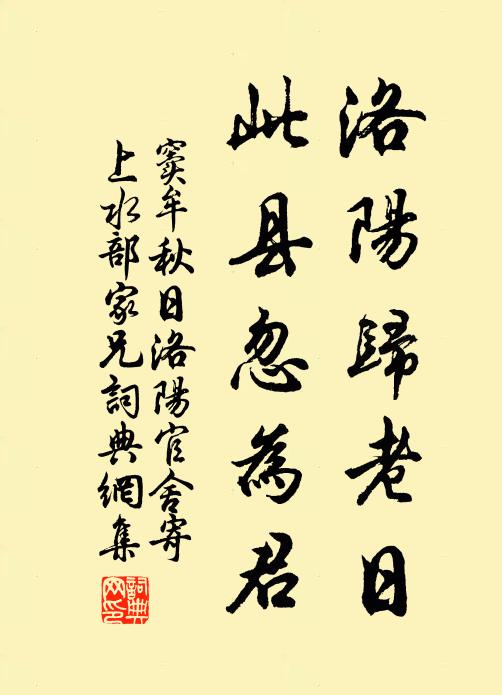 洛陽歸老日
此县忽為君
窦牟秋日洛陽官舍寄
上水部家兄詞典網集
詞典网印